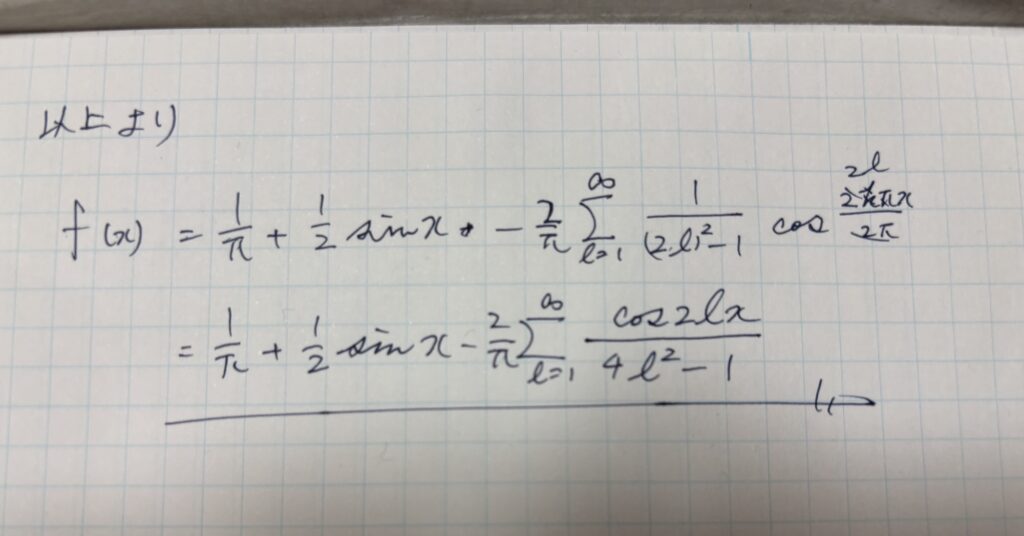 以上より
f(x) = 1/π + 1/2 sin x · - 2/π ∑_{l=1}^{∞} 1/((2l)²-1) cos 2l 2πx/2π
= 1/π + 1/2 sin x - 2/π ∑_{l=1}^{∞} cos2lx/(4l²-1)